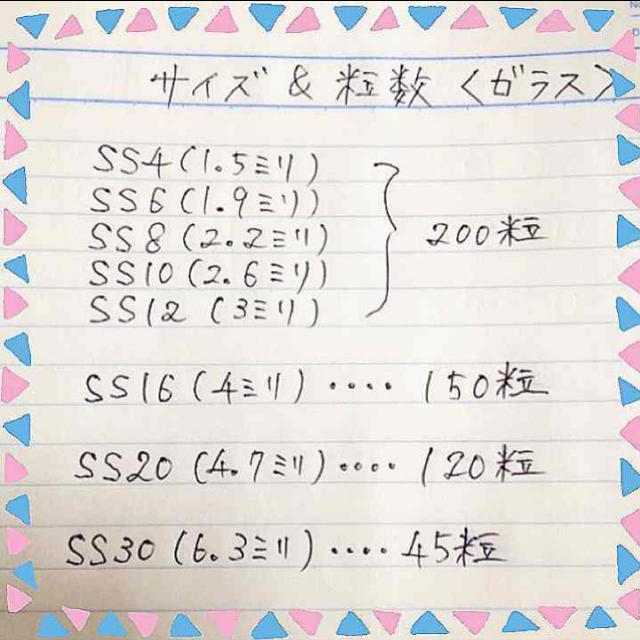 サイズ & 粒数 〈ガラス〉
SS4(1.5ミリ)
SS6(1.9ミリ)
SS8(2.2ミリ)
SS10(2.6ミリ)
SS12(3ミリ)
200粒
SS16(4ミリ)････150粒
SS20(4.7ミリ)････120粒
SS30(6.3ミリ)････45粒